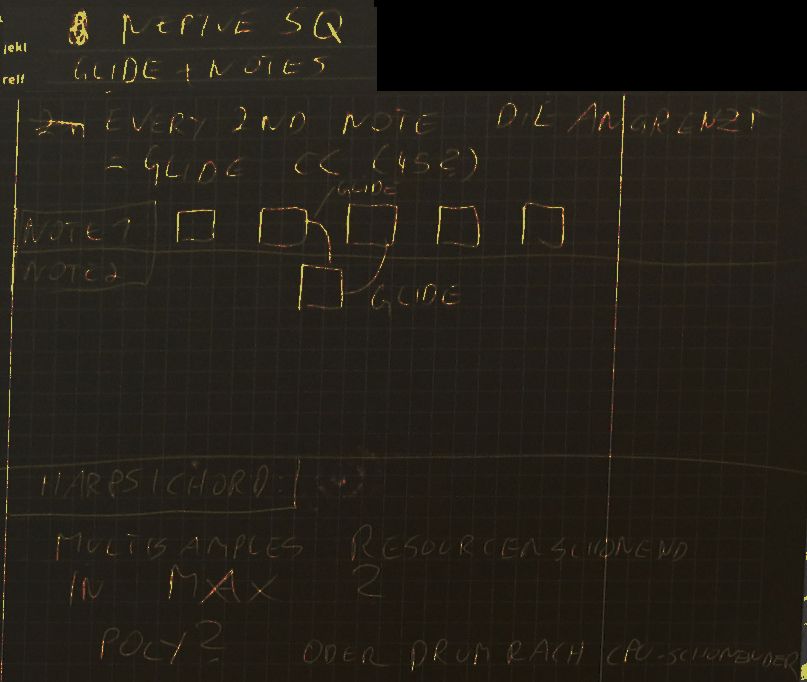 jekt
reff
NEPTVE SQ
GLIDE + NOTES
EVERY 2ND NOTE DIE ANGRENZT
= GLIDE CC (45?)
GLIDE
NOTE 1
NOTE 2
GLIDE
HARPSICHORD:
MULTISAMPLES RESOURCENSCHONEND
IN MAX ?
POLY? ODER DRUM RACH CPU-SCHONENDER